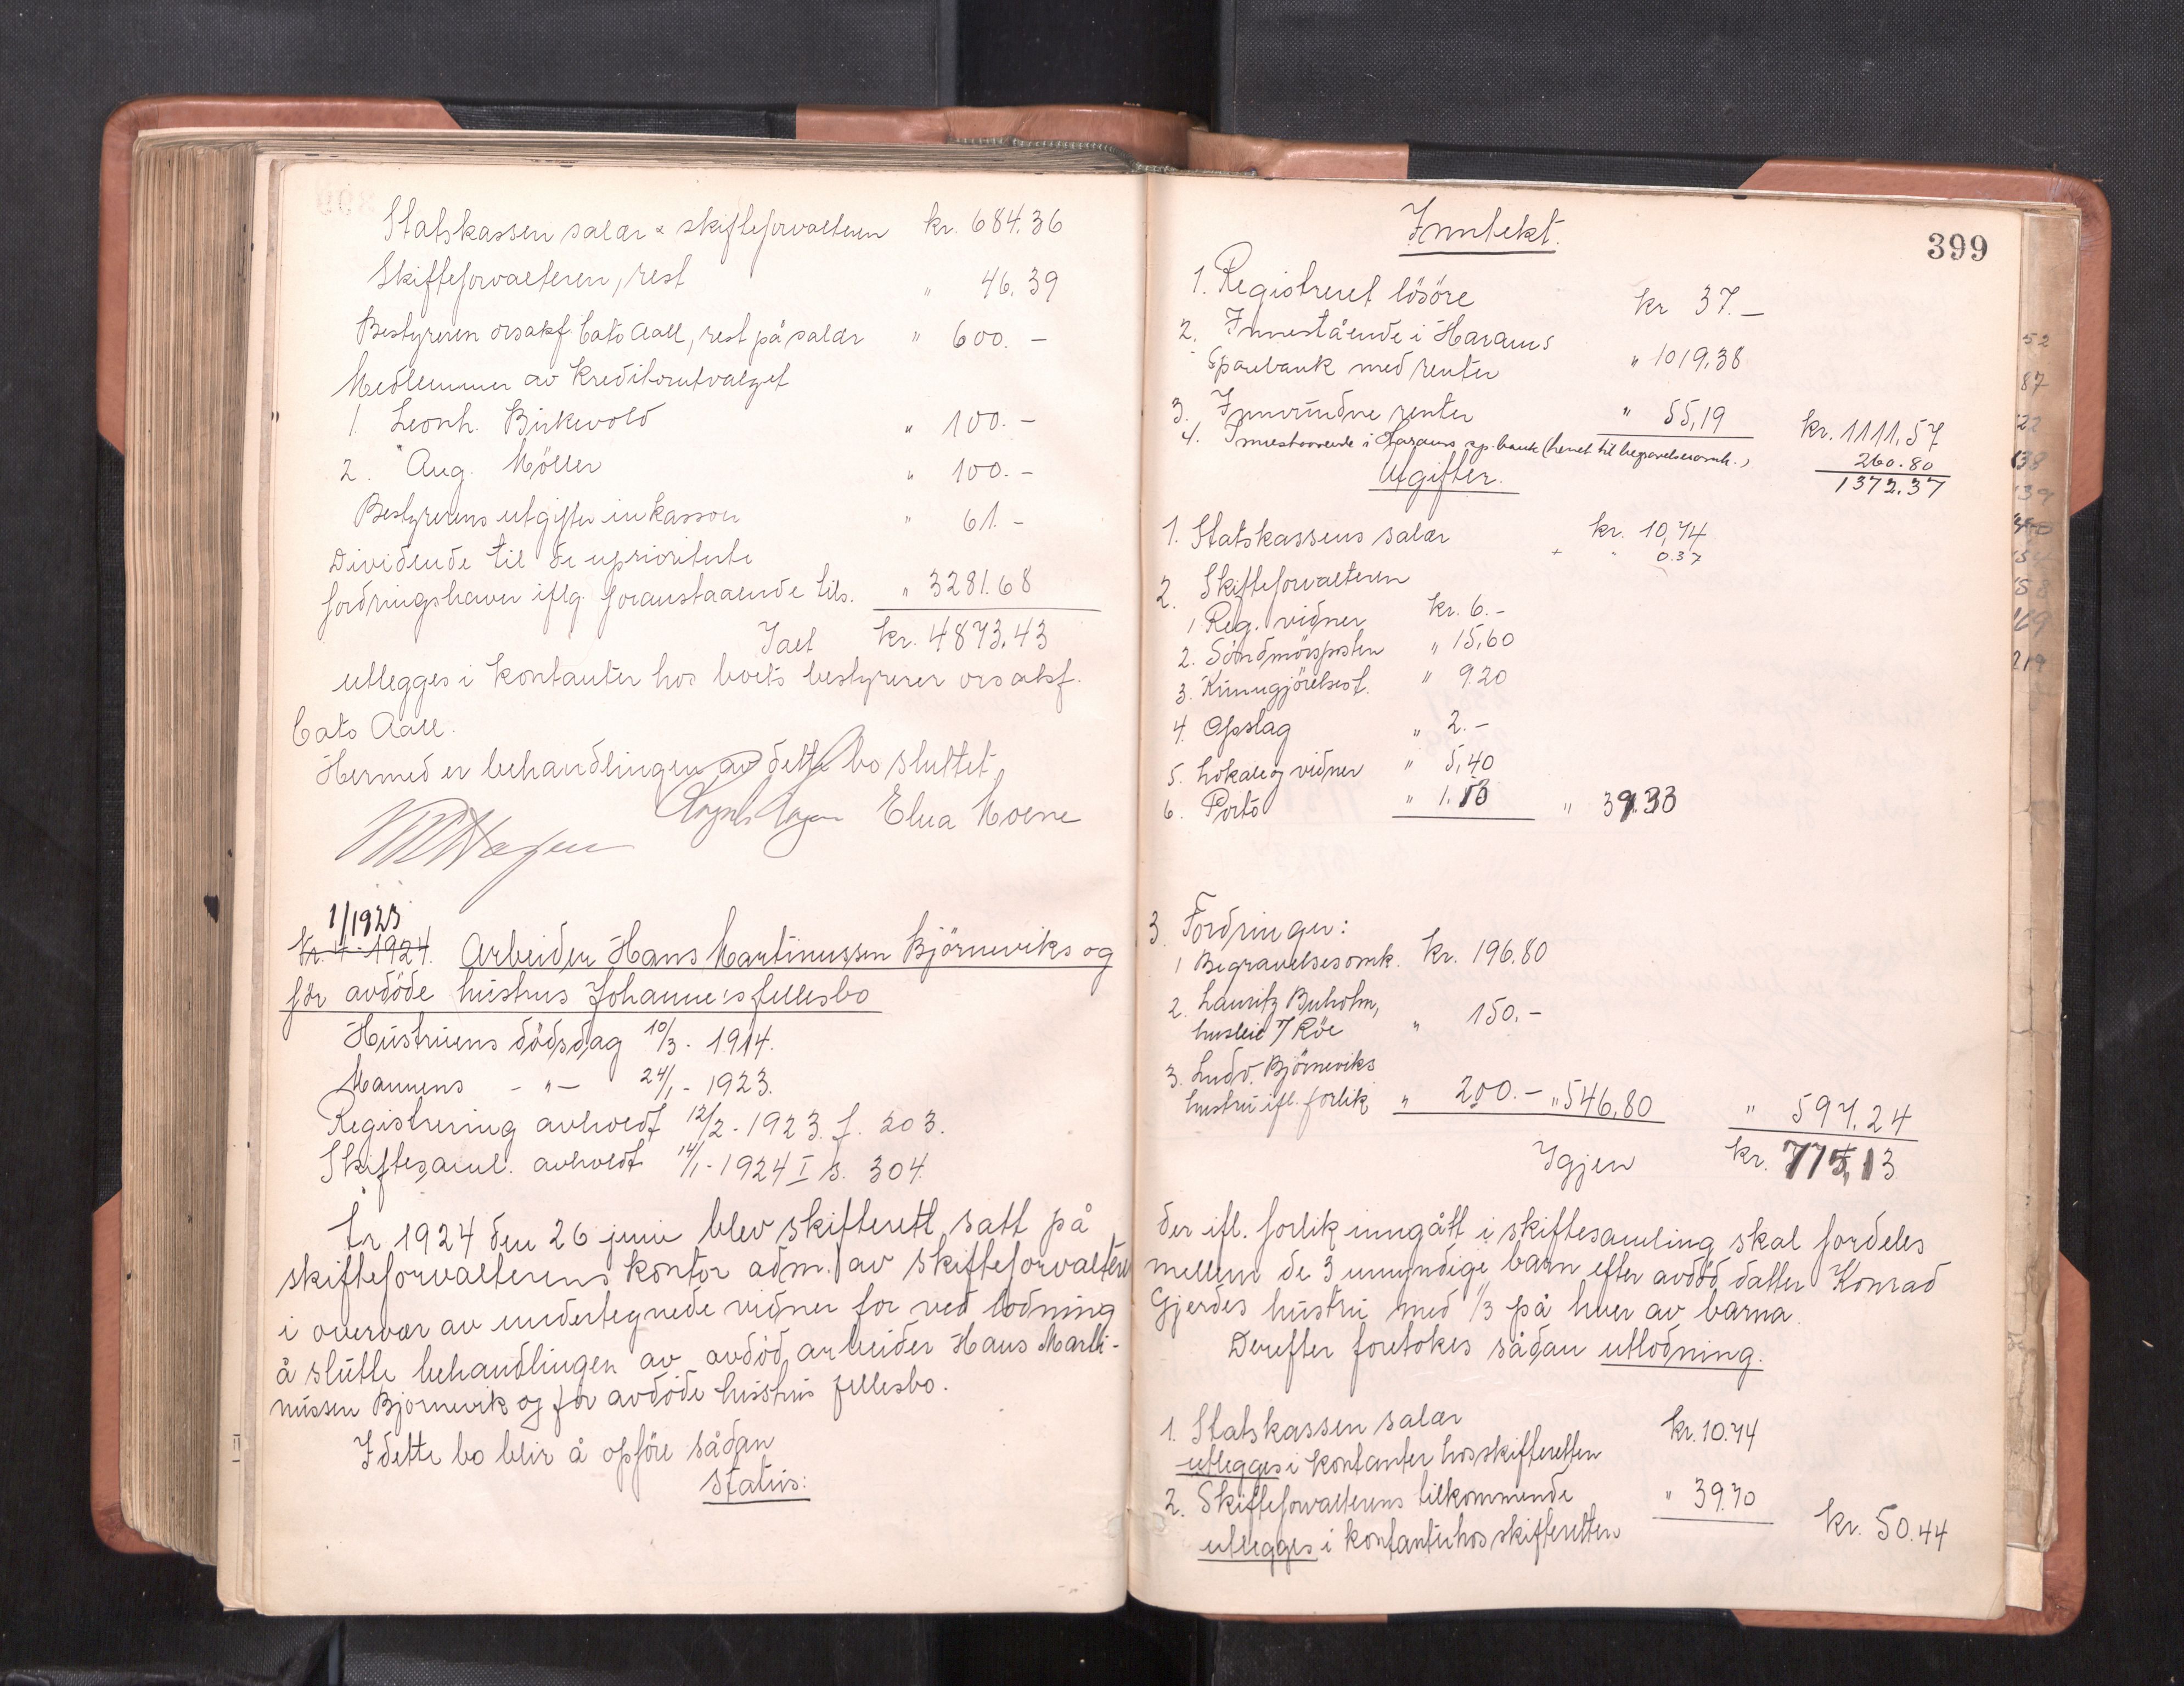 Statskassen salær & skifteforvalteren kr. 684.36
Skifteforvalteren, rest " 46.39
Bestyreren orsakf. Cato Aall, rest på salær " 600. -
Medlemmer av kreditorutvalget
1. Leonh. Birkevold " 100. -
2. Aug. Möller " 100. -
Bestyrerens utgifter inkasson " 61. -
Dividende til de uprioriterte
fordringshaver iflg. foranstaaende tils. " 3281.68
Ialt kr. 4873.43
utlegges i kontanter hos boets bestyrer orsakf.
Cato Aall.
Hermed er behandlingen av dette bo sluttet.
Elna Moene
1/1923
Nr. 4 - 1924. Arbeider Hans Martinussen Björneviks og
för avdöde hustrus Johanne's fellesbo
Hustruens dödsdag 10/3 - 1914.
Mannens - " - 24/1 - 1923.
Registrering avholdt 12/2 - 1923 f. 203.
Skiftesaml. avholdt 14/1 - 1924 I s. 304.
År 1924 den 26 juni blev skifterett satt på
skifteforvalterens kontor adm. av skifteforvalteren
i overvær av undertegnede vidner for ved lodning
å slutte behandlingen av avdöd arbeider Hans Marti-
nussen Bjornevik og för avdöde hustrus fellesbo.
I dette bo blir å opföre sådan
Status:
399
Inntekt.
1. Registreret lösöre kr 37. -
2. Innestående i Harams
Sparebank med renter " 1019,38
3. Innvundne renter " 55,19 kr. 1111,57
4. Innestaaende i Harams sp.bank (hevet til begravelsesomk.) 260.80
1372.37
Utgifter.
1. Statskassens salær kr. 10,74
+ " 0.37
2. Skifteforvalteren
1 Reg. vidner kr. 6. -
2. Söndmörsposten " 15,60
3. Kunngjörelsest. " 9.20
4. Opslag " 2. -
5. Lokale og vidner " 5,40
6. Porto " 1.13 " 39.33
3. Fordringer:
1 Begravelsesomk. kr. 196.80
2. Lauritz Buholm,
husleie 7 Röe " 150. -
3. Ludv. Björneviks
hustru ifl. forlik " 200. - " 546,80 " 597.24
Igjen kr. 775,13
der ifl. forlik inngått i skiftesamling skal fordeles
mellem de 3 umyndige barn efter avdöd datter Konrad
Gjerdes hustru med 1/3 på hver av barna.
Derefter foretokes sådan utlodning.
1. Statskassen salær kr. 10.74
utlegges i kontanter hos skifteretten
2. Skifteforvalterens tilkommende " 39.70
utlegges i kontanter hos skifteretten kr. 50.44